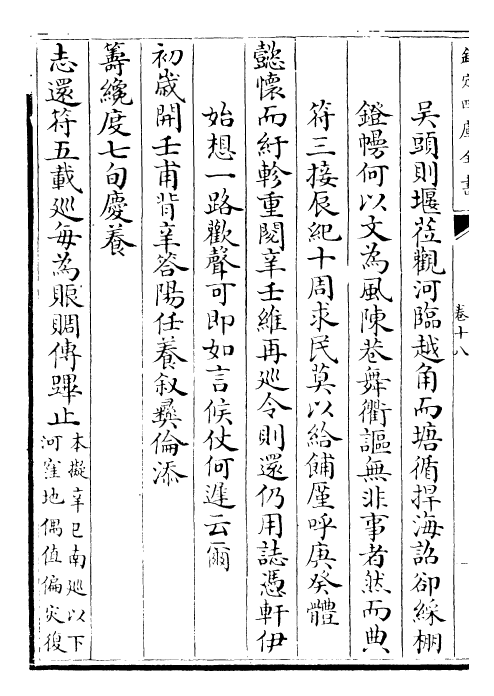 欽定四庫全書
卷十八
吳頭則堰莅觀河臨越角而塘循捍海詔卻綵棚
鐙幔何以文為風陳巷舞衢謳無非事者然而典
符三接辰紀十周求民莫以給餔廑呼庚癸體
懿懷而紆軫重閱辛壬維再巡令則還仍用誌憑軒伊
始想一路歡聲可即如言候仗何遲云爾
初歲開壬甫背辛答陽任養敘彝倫添
籌纔度七旬慶養
志還符五載巡每為賬賙傳蹕止本擬辛巳南巡以下
河窪地偶值偏災復